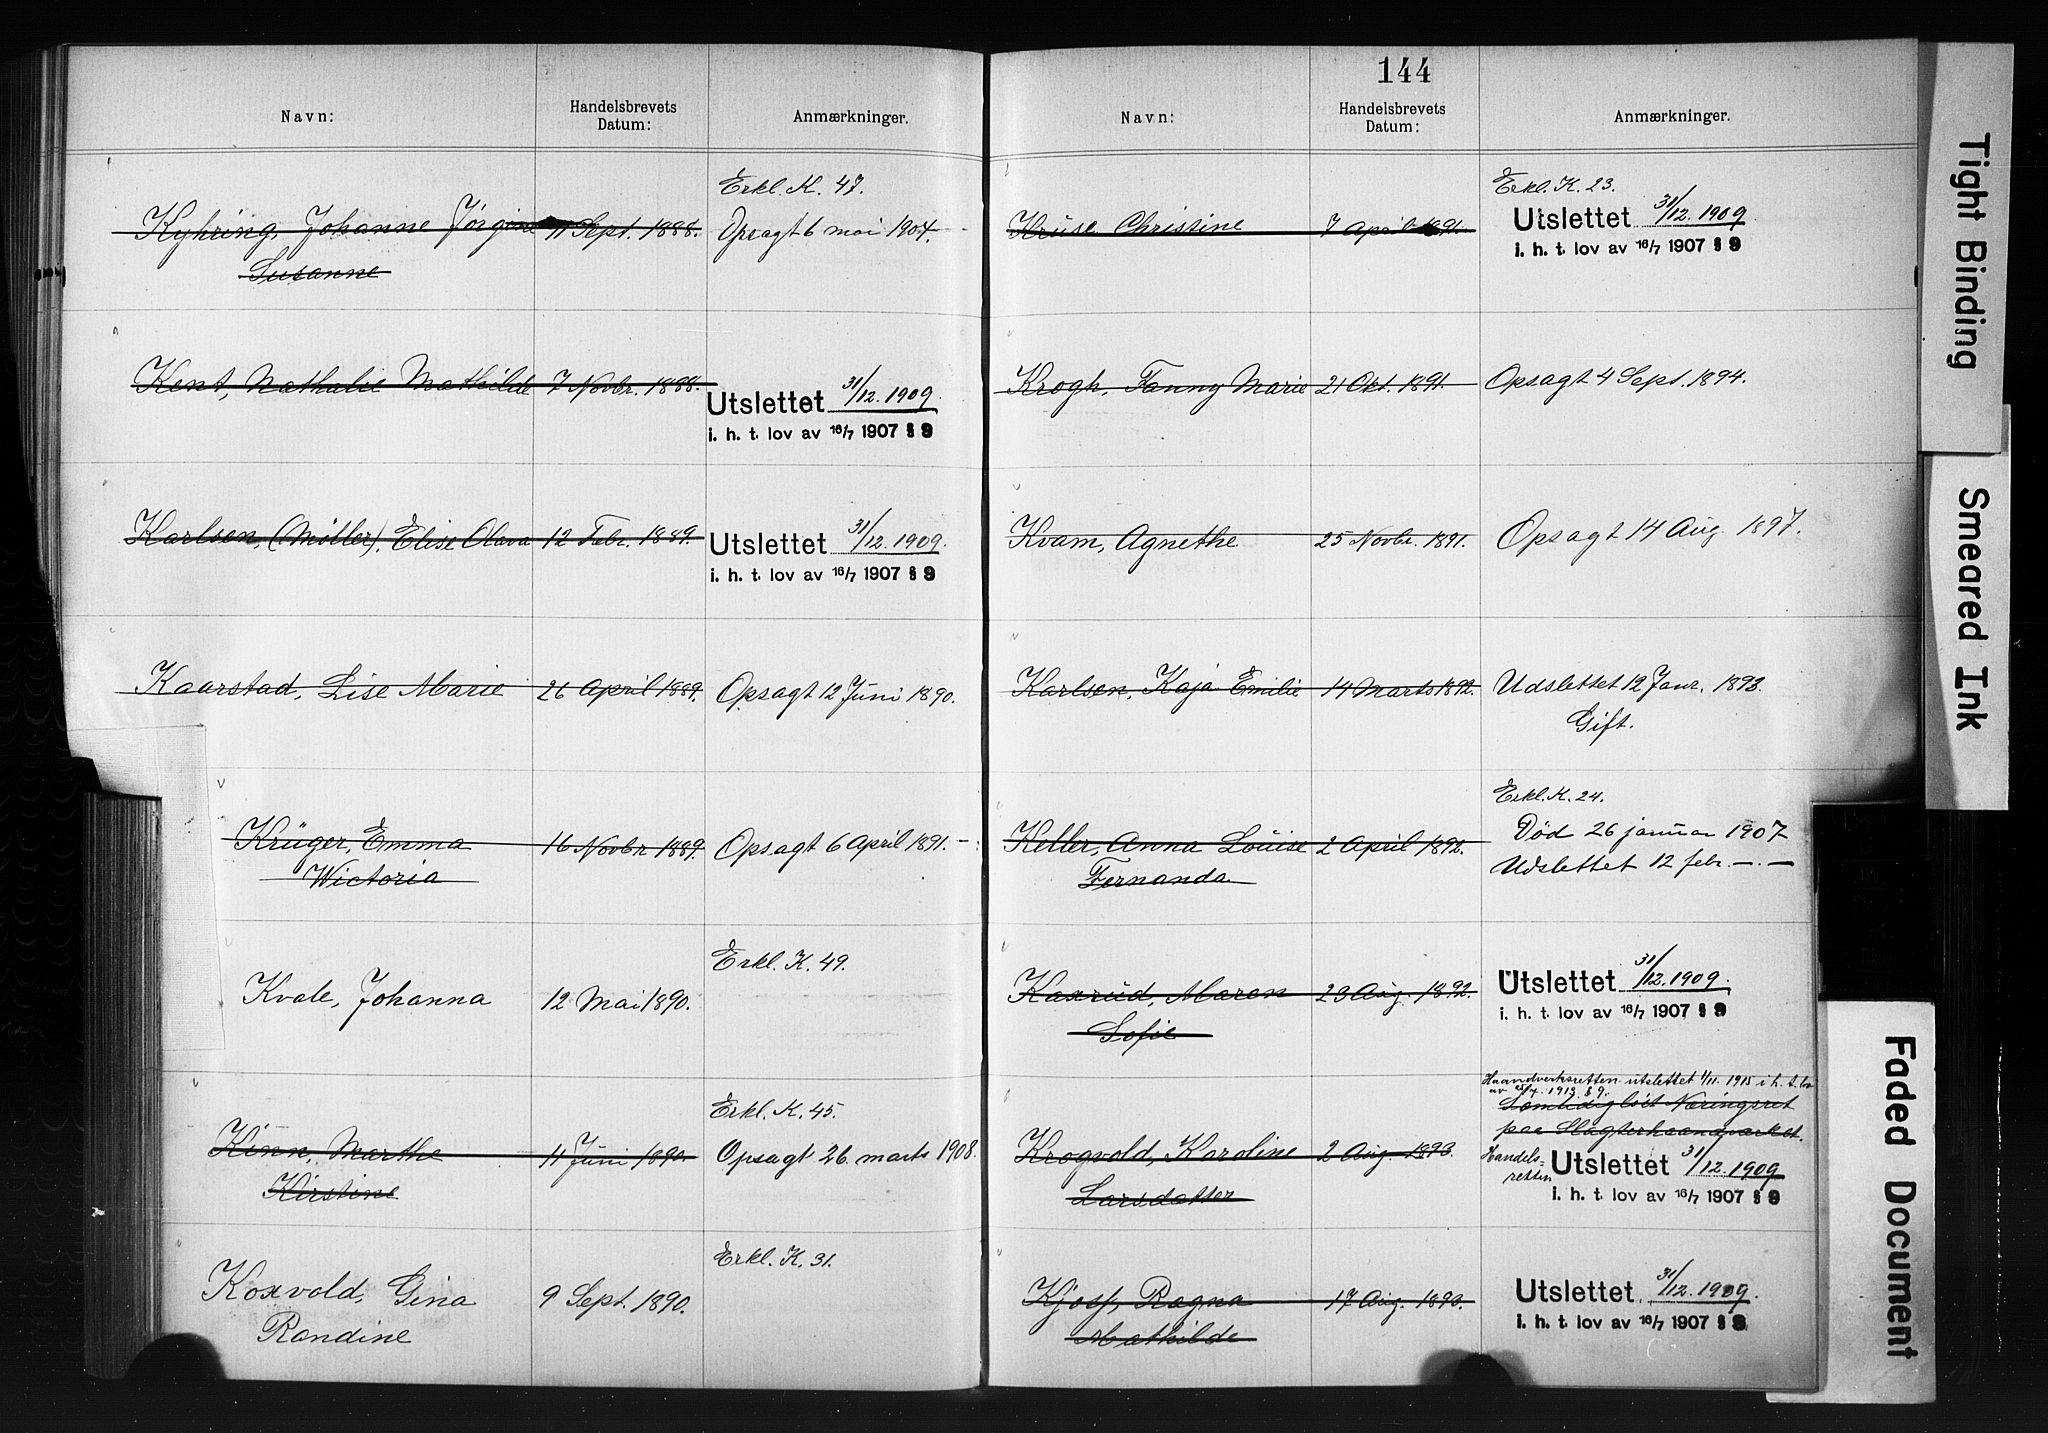 Navn:
Handelsbrevets
Datum:
Anmærkninger.
Erkl. K. 47.
Kyhring, Johanne Jörgine 11 Sept. 1888. Opsagt 6 mai 1904.
Susanne
Kent, Nathalie Mathilde 7 Novbr. 1888.
Utslettet 31/12. 1909.
i. h. t. lov av 16/7 1907 § 9
Karlsen, (Möller), Elise Olava 12 Febr. 1889.
Utslettet 31/12. 1909.
i. h. t. lov av 16/7 1907 § 9
Kaarstad, Lise Marie 26 April 1889. Opsagt 12 Juni 1890.
Krüger, Emma 16 Novbr 1889. Opsagt 6 April 1891.
Wictoria
Erkl. K. 49.
Kvale, Johanna 12 Mai 1890.
Erkl. K. 45.
Kinn, Marthe 11 Juni 1890. Opsagt 26. marts 1908.
Kirstine
Erkl. K. 31.
Koxvold, Gina 9 Sept. 1890.
Randine
144
Navn:
Handelsbrevets
Datum:
Anmærkninger.
Erkl. K. 23.
Kruse Christine 7 April 1891.
Utslettet 31/12. 1909
i. h. t. lov av 16/7 1907 § 9
Krogh, Fanny Marie 21 Okt. 1891. Opsagt 4 Sept. 1894.
Kvam, Agnethe 25 Novbr. 1891. Opsagt 14 Aug 1897.
Karlsen, Kaja Emilie 14 Marts 1892. Udslettet 12 Janr. 1893.
Gift.
Erkl. K. 24.
Keller, Anna Louise 2 April 1892. Död 26 januar 1907
Fernanda Udslettet 12 febr. — . —
Kaxrud, Maren 23 Aug. 1892.
Sofie
Utslettet 31/12. 1909.
i. h. t. lov av 16/7 1907 § 9
Haandverksretten utslettet 1/11. 1915 i h. t. lov
av 1913 § 9.
Samtidig löst Næringsret
paa Slagterhaandværket.
Krogvold, Karoline 2 Aug. 1893.
Larsdatter
Handels-
retten
Utslettet 31/12. 1909
i. h. t. lov av 16/7 1907 § 9
Kjoss, Ragna 17 Aug. 1893.
Mathilde
Utslettet 31/12. 1909.
i. h. t. lov av 16/7 1907 § 9
Tight Binding
Smeared Ink
Faded Document